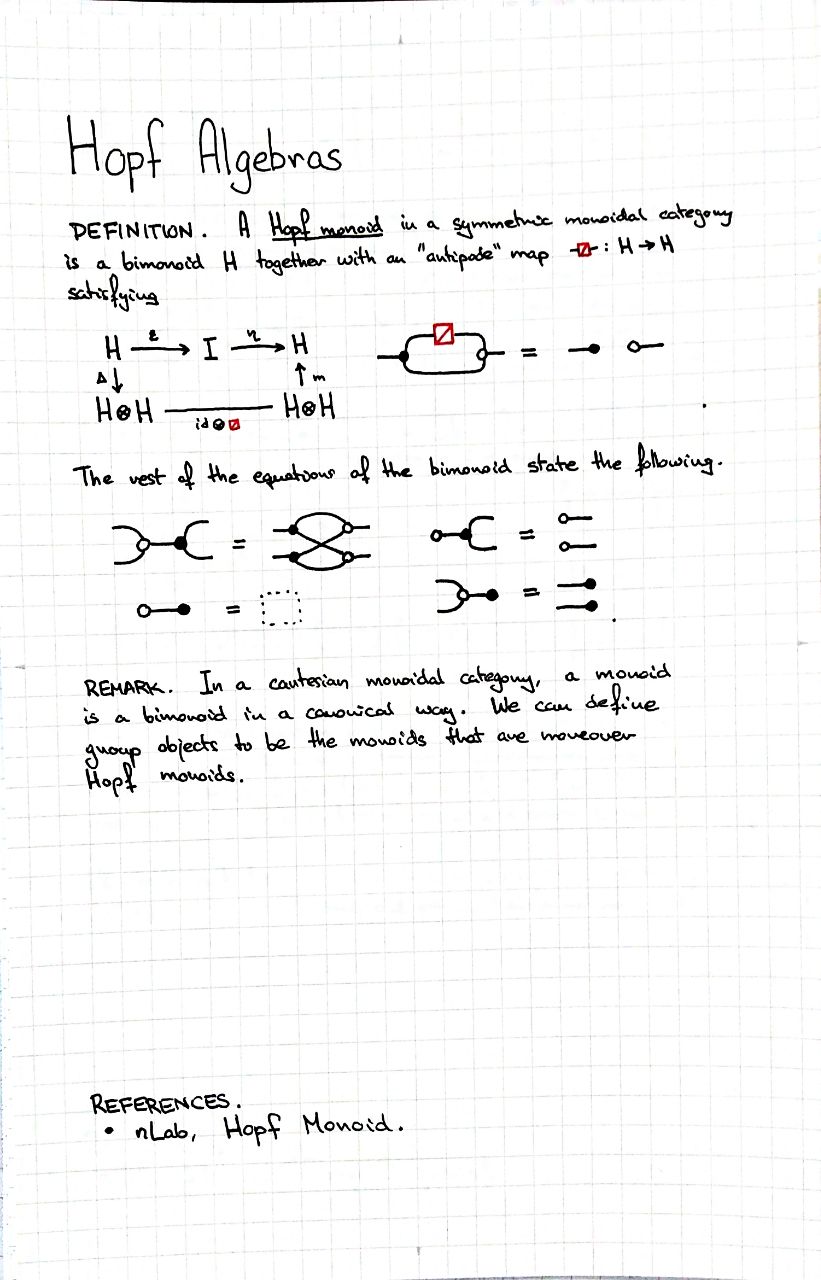 Hopf Algebras
DEFINITION. A Hopf monoid in a symmetric monoidal category
is a bimonoid H together with an "antipode" map : H → H
satisfying
H ε → I η → H
Δ ↓ ↑ m
H⊗H id ⊗ H⊗H
=
The rest of the equations of the bimonoid state the following.
= =
= =
REMARK. In a cartesian monoidal category, a monoid
is a bimonoid in a canonical way. We can define
group objects to be the monoids that are moreover
Hopf monoids.
REFERENCES.
• nLab, Hopf Monoid.